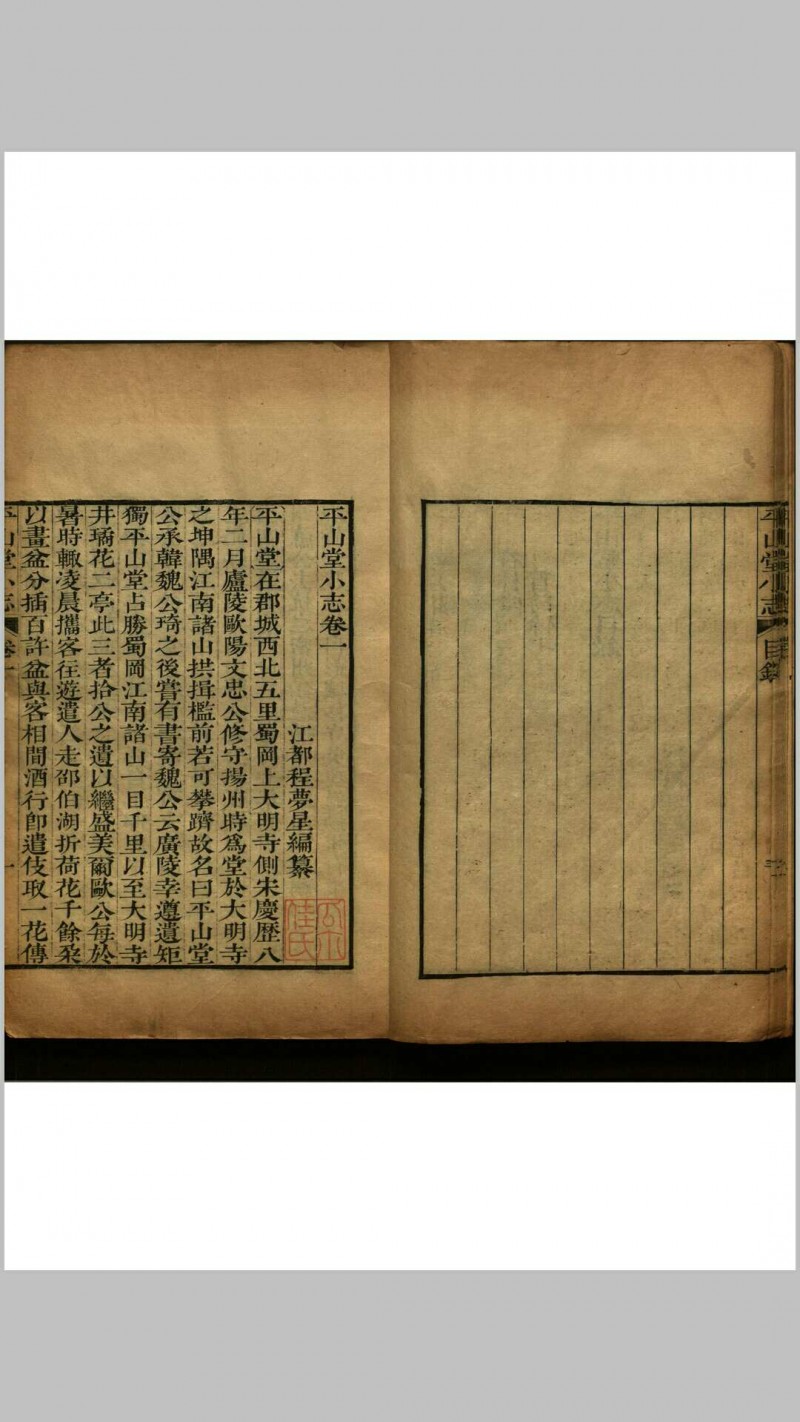 平山堂小志
目錄
平山堂小志卷一
江都程夢星編纂
平山堂在郡城西北五里蜀岡上大明寺側宋慶歷八
年二月廬陵歐陽文忠公修守揚州時爲堂於大明寺
之坤隅江南諸山拱揖檻前若可攀躋故名曰平山堂
公承韓魏公琦之後嘗有書寄魏公云廣陵幸遵遺矩
獨平山堂占勝蜀岡江南諸山一目千里以至大明寺
井璚花二亭此三者拾公之遺以繼盛美爾歐公每於
暑時輒凌晨攜客往遊遣人走邵伯湖折荷花千餘朶
以畫盆分插百許盆與客相間酒行卽遣伎取一花傳
平山堂小志
卷一
一